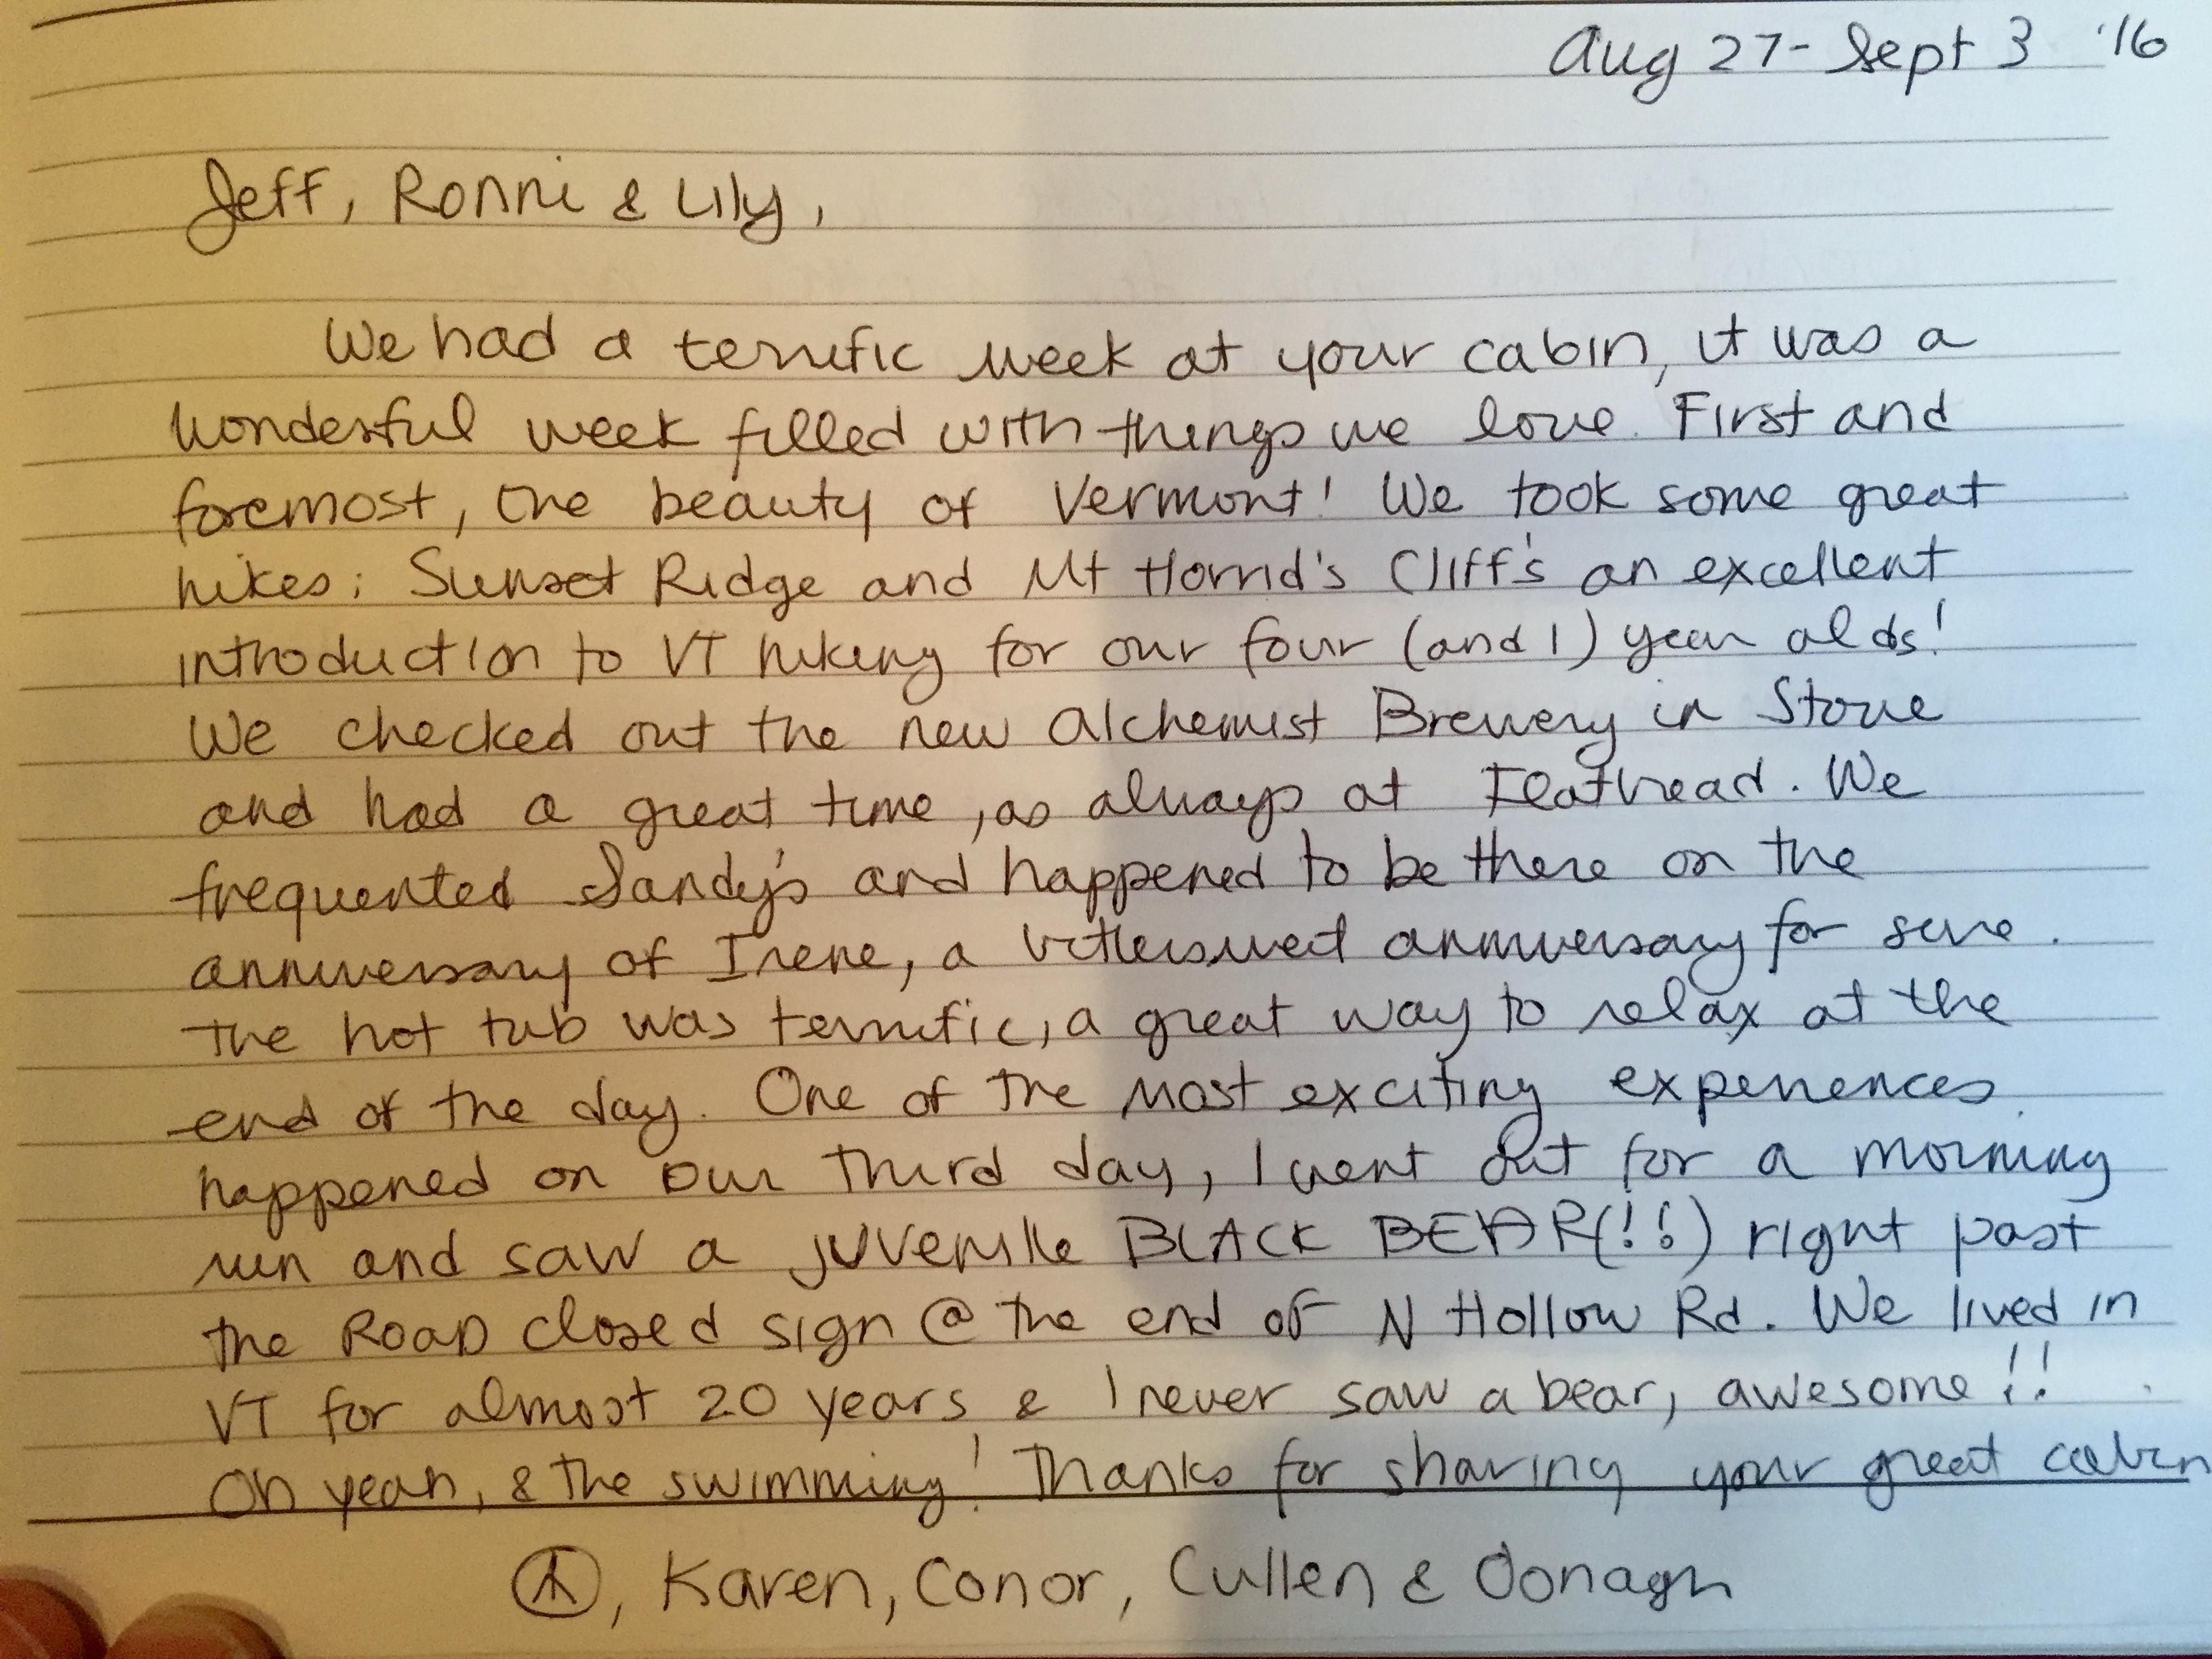 Aug 27 - Sept 3 '16
Jeff, Ronni & Lily,
We had a terrific week at your cabin, it was a
wonderful week filled with things we love. First and
foremost, the beauty of Vermont! We took some great
hikes; Sunset Ridge and Mt Horrid's Cliff's an excellent
introduction to VT hiking for our four (and 1) year olds!
We checked out the new Alchemist Brewery in Stowe
and had a great time, as always at Flathead. We
frequented Sandy's and happened to be there on the
anniversary of Irene, a bittersweet anniversary for sure.
The hot tub was terrific, a great way to relax at the
end of the day. One of the most exciting experiences
happened on our third day, I went out for a morning
run and saw a juvenile BLACK BEAR(!!) right past
the Road closed sign @ the end of N Hollow Rd. We lived in
VT for almost 20 years & I never saw a bear, awesome!!
Oh yeah, & the swimming! Thanks for sharing your great cabin
, Karen, Conor, Cullen & Oonagh